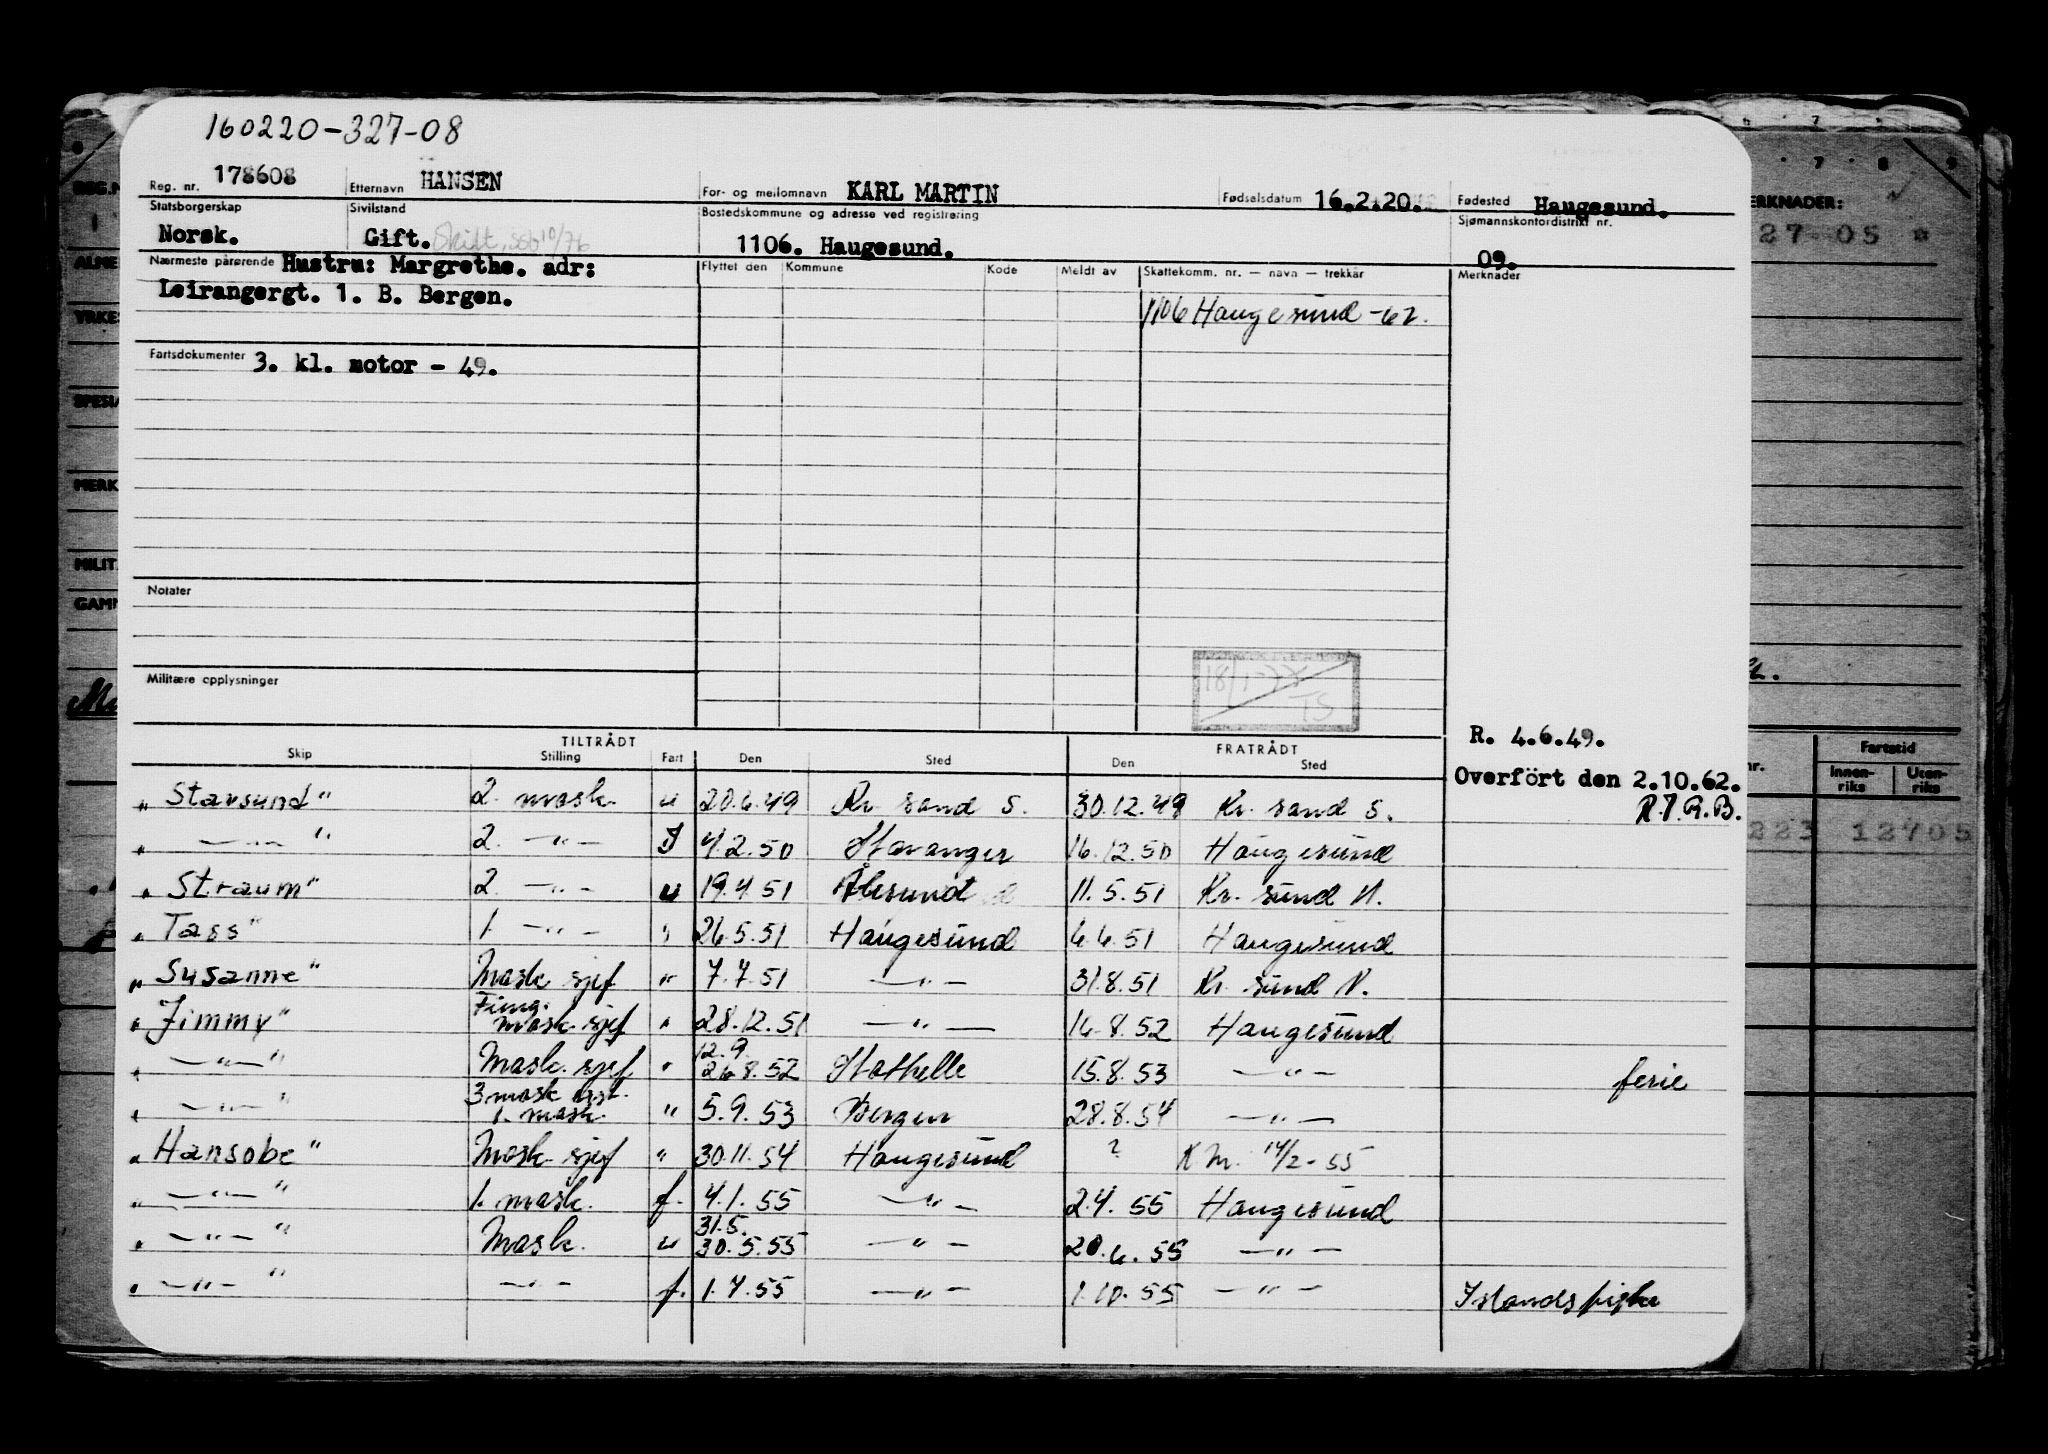 160220-327-08
Reg. nr. 178608 Etternavn HANSEN For- og mellomnavn KARL MARTIN Fødselsdatum 16.2.20. Fødested Haugesund.
Statsborgerskap Sivilstand Bostedskommune og adresse ved registrering Sjømannskontordistrikt nr.
Norsk. Gift. Skilt, SSB 10/76 1106. Haugesund. 09.
Nærmeste pårørende Hustru: Margrethe. adr: Flyttet den Kommune Kode Meldt av Skattekomm. nr. — navn — trekkår Merknader
Leirangergt. 1. B. Bergen. 1106 Haugesund -62.
Fartsdokumenter 3. kl. motor - 49.
Notater
Militære opplysninger
TS
R. 4.6.49.
TILTRÅDT FRATRÅDT
Skip Stilling Fart Den Sted Den Sted
Overfört den 2.10.62.
R.T.R.B.
„ Starsund " 2. mask. u 20.6.49 Kr. sand S. 30.12.49 Kr. sand S.
„ —„— " 2. —„— I 4.2.50 Stavanger 16.12.50 Haugesund
„ Straum " 2. —„— u 19.4 51 Ålesund 11.5.51 Kr. sund N.
„ Tass " 1. —„— " 26.5.51 Haugesund 6.6.51 Haugesund
„ Susanne " Mask sjef " 7.7.51 —„— 31.8.51 Kr. sund N.
„ Jimmy " Fung. mask. sjef " 28.12.51 —„— 16.8.52 Haugesund
12.9.
„ —„— " Mask. sjef " 26.8.52 Stathelle 15.8.53 —„— ferie
3 mask asst.
„ —„— " 1. mask. " 5.9.53 Bergen 28.8.54 —„—
„ Hansobe " Mask sjef " 30.11.54 Haugesund ? K M. 14/2-55
„ —„— " 1. mask. f. 4.1.55 —„— 2.4.55 Haugesund
31.5.
„ —„— " Mask. u 30.5.55 —„— 20.6.55 —„—
„ —„— " —„— f. 1.7.55 —„— 1.10.55 —„— Islandsfiske
7 8 9
ERKNADER:
27 05
Fartstid
Innen-riks Uten-riks
223 12705